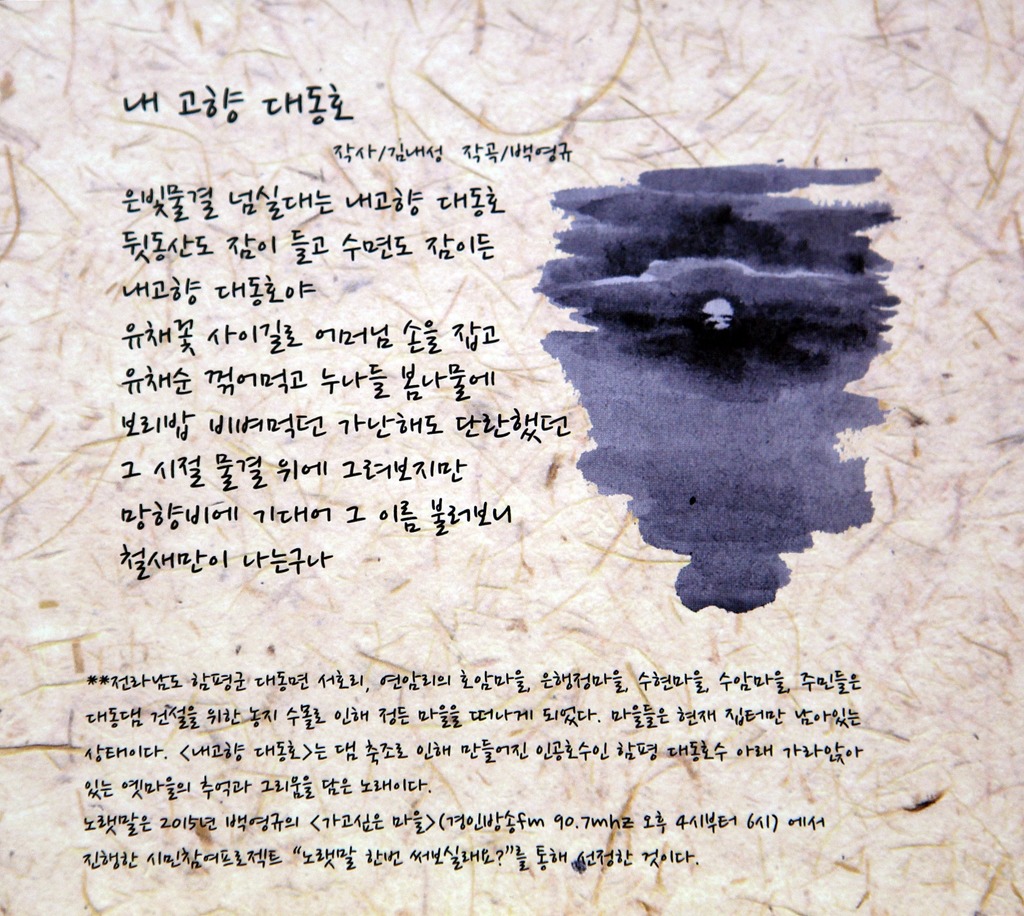 내 고향 대동호
작사/김내성 작곡/백영규
은빛물결 넘실대는 내고향 대동호
뒷동산도 잠이 들고 수면도 잠이든
내고향 대동호야
유채꽃 사이길로 어머님 손을 잡고
유채순 꺾어먹고 누나들 봄나물에
보리밥 비벼먹던 가난해도 단란했던
그 시절 물결 위에 그려보지만
망향비에 기대어 그 이름 불러보니
철새만이 나는구나
**전라남도 함평군 대동면 서호리, 연암리의 호암마을, 은행정마을, 수현마을, 수암마을, 주민들은
대동댐 건설을 위한 농지 수몰로 인해 정든 마을을 떠나게 되었다. 마을들은 현재 집터만 남아있는
상태이다. <내고향 대동호>는 댐 축조로 인해 만들어진 인공호수인 함평 대동호수 아래 가라앉아
있는 옛마을의 추억과 그리움을 담은 노래이다.
노랫말은 2015년 백영규의 <가고싶은 마을>(경인방송fm 90.7mhz 오후 4시부터 6시) 에서
진행한 시민참여프로젝트 "노랫말 한번 써보실래요?"를 통해 선정한 것이다.